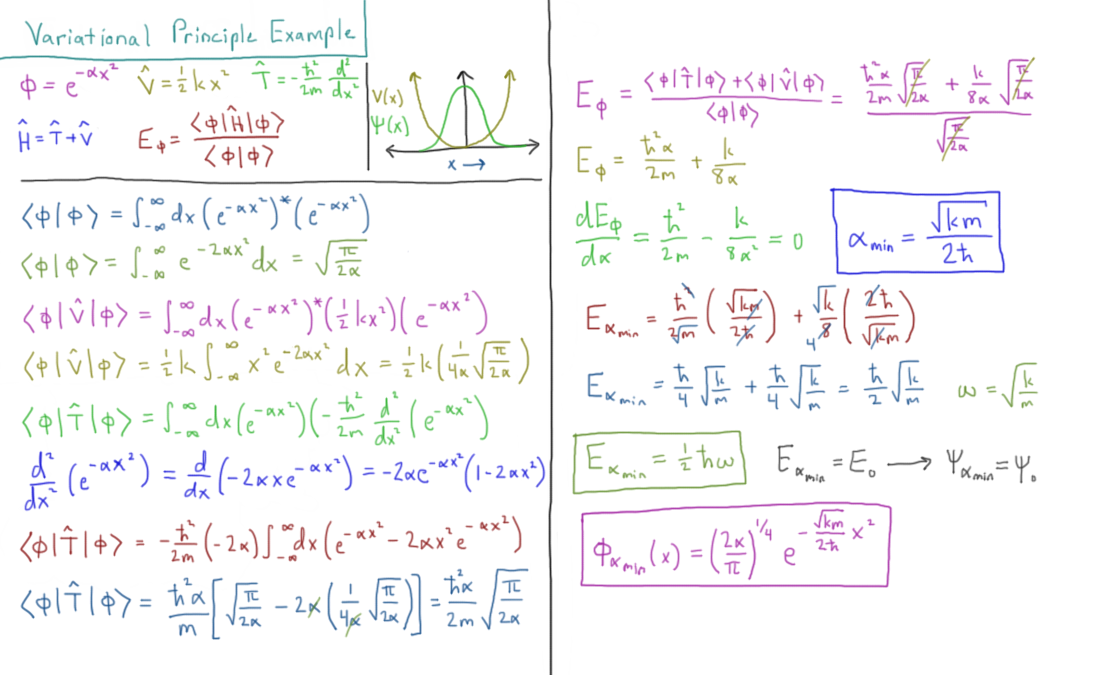 Variational Principle Example
ϕ = e^{-αx²} V̂ = ½kx² T̂ = -ħ²/2m d²/dx²
Ĥ = T̂ + V̂ E_ϕ = ⟨ϕ|Ĥ|ϕ⟩ / ⟨ϕ|ϕ⟩
V(x)
Ψ(x)
x →
⟨ϕ|ϕ⟩ = ∫_{-∞}^{∞} dx (e^{-αx²})* (e^{-αx²})
⟨ϕ|ϕ⟩ = ∫_{-∞}^{∞} e^{-2αx²} dx = √(π/2α)
⟨ϕ|V̂|ϕ⟩ = ∫_{-∞}^{∞} dx (e^{-αx²})* (½kx²)(e^{-αx²})
⟨ϕ|V̂|ϕ⟩ = ½k ∫_{-∞}^{∞} x² e^{-2αx²} dx = ½k (1/4α √(π/2α))
⟨ϕ|T̂|ϕ⟩ = ∫_{-∞}^{∞} dx (e^{-αx²})(-ħ²/2m d²/dx² (e^{-αx²})
d²/dx² (e^{-αx²}) = d/dx (-2αx e^{-αx²}) = -2αe^{-αx²}(1-2αx²)
⟨ϕ|T̂|ϕ⟩ = -ħ²/2m (-2α) ∫_{-∞}^{∞} dx (e^{-αx²} - 2αx² e^{-αx²})
⟨ϕ|T̂|ϕ⟩ = ħ²α/m [√(π/2α) - 2α (1/4α √(π/2α))] = ħ²α/2m √(π/2α)
E_ϕ = (⟨ϕ|T̂|ϕ⟩ + ⟨ϕ|V̂|ϕ⟩) / ⟨ϕ|ϕ⟩ = (ħ²α/2m √(π/2α) + k/8α √(π/2α)) / √(π/2α)
E_ϕ = ħ²α/2m + k/8α
dE_ϕ/dα = ħ²/2m - k/8α² = 0 α_min = √(km) / 2ħ
E_{α_min} = ħ²/2m (√(km)/2ħ) + k/8 (2ħ/√(km)) 4
E_{α_min} = ħ/4 √(k/m) + ħ/4 √(k/m) = ħ/2 √(k/m) ω = √(k/m)
E_{α_min} = ½ħω E_{α_min} = E₀ → Ψ_{α_min} = Ψ₀
ϕ_{α_min}(x) = (2α/π)^{1/4} e^{-√(km)/2ħ x²}